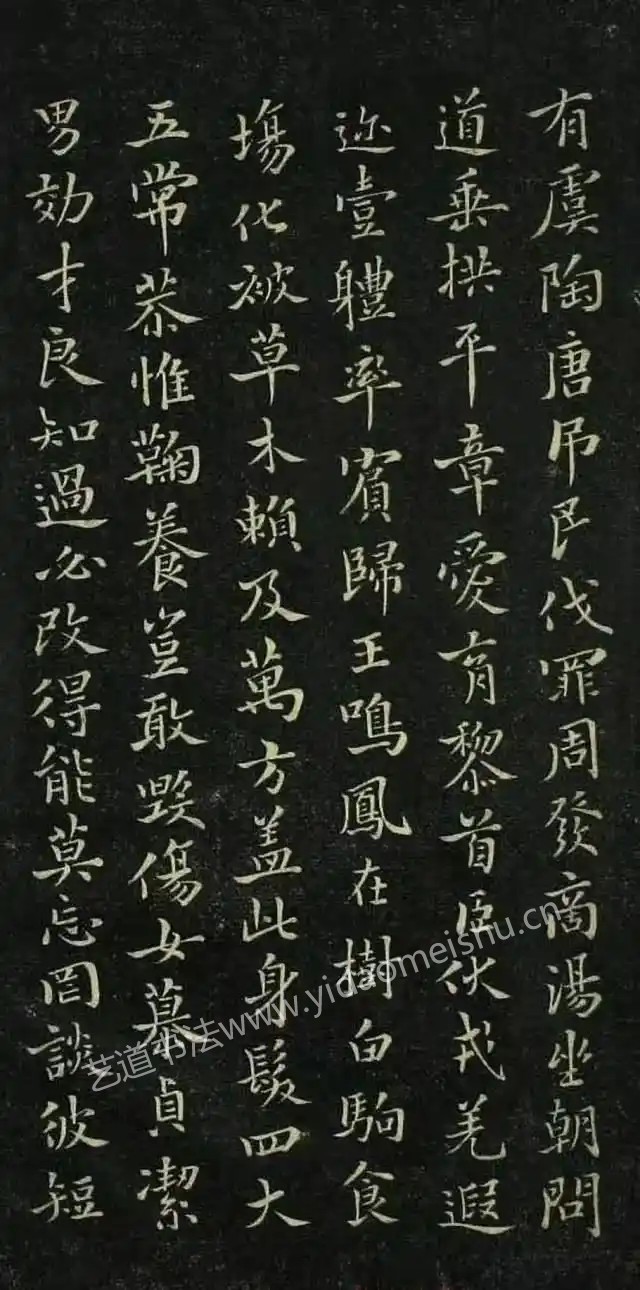 有虞陶唐吊民伐罪周發商湯坐朝問
道垂拱平章愛育黎首臣伏戎羌遐
迩壹軆率賓歸王鳴鳳在樹白駒食
塲化被草木賴及萬方盖此身髮四大
五常恭惟鞠養豈敢毀傷女慕貞潔
男効才良知過必改得能莫忘罔談彼短
艺道书法www.yidaomeishu.cn